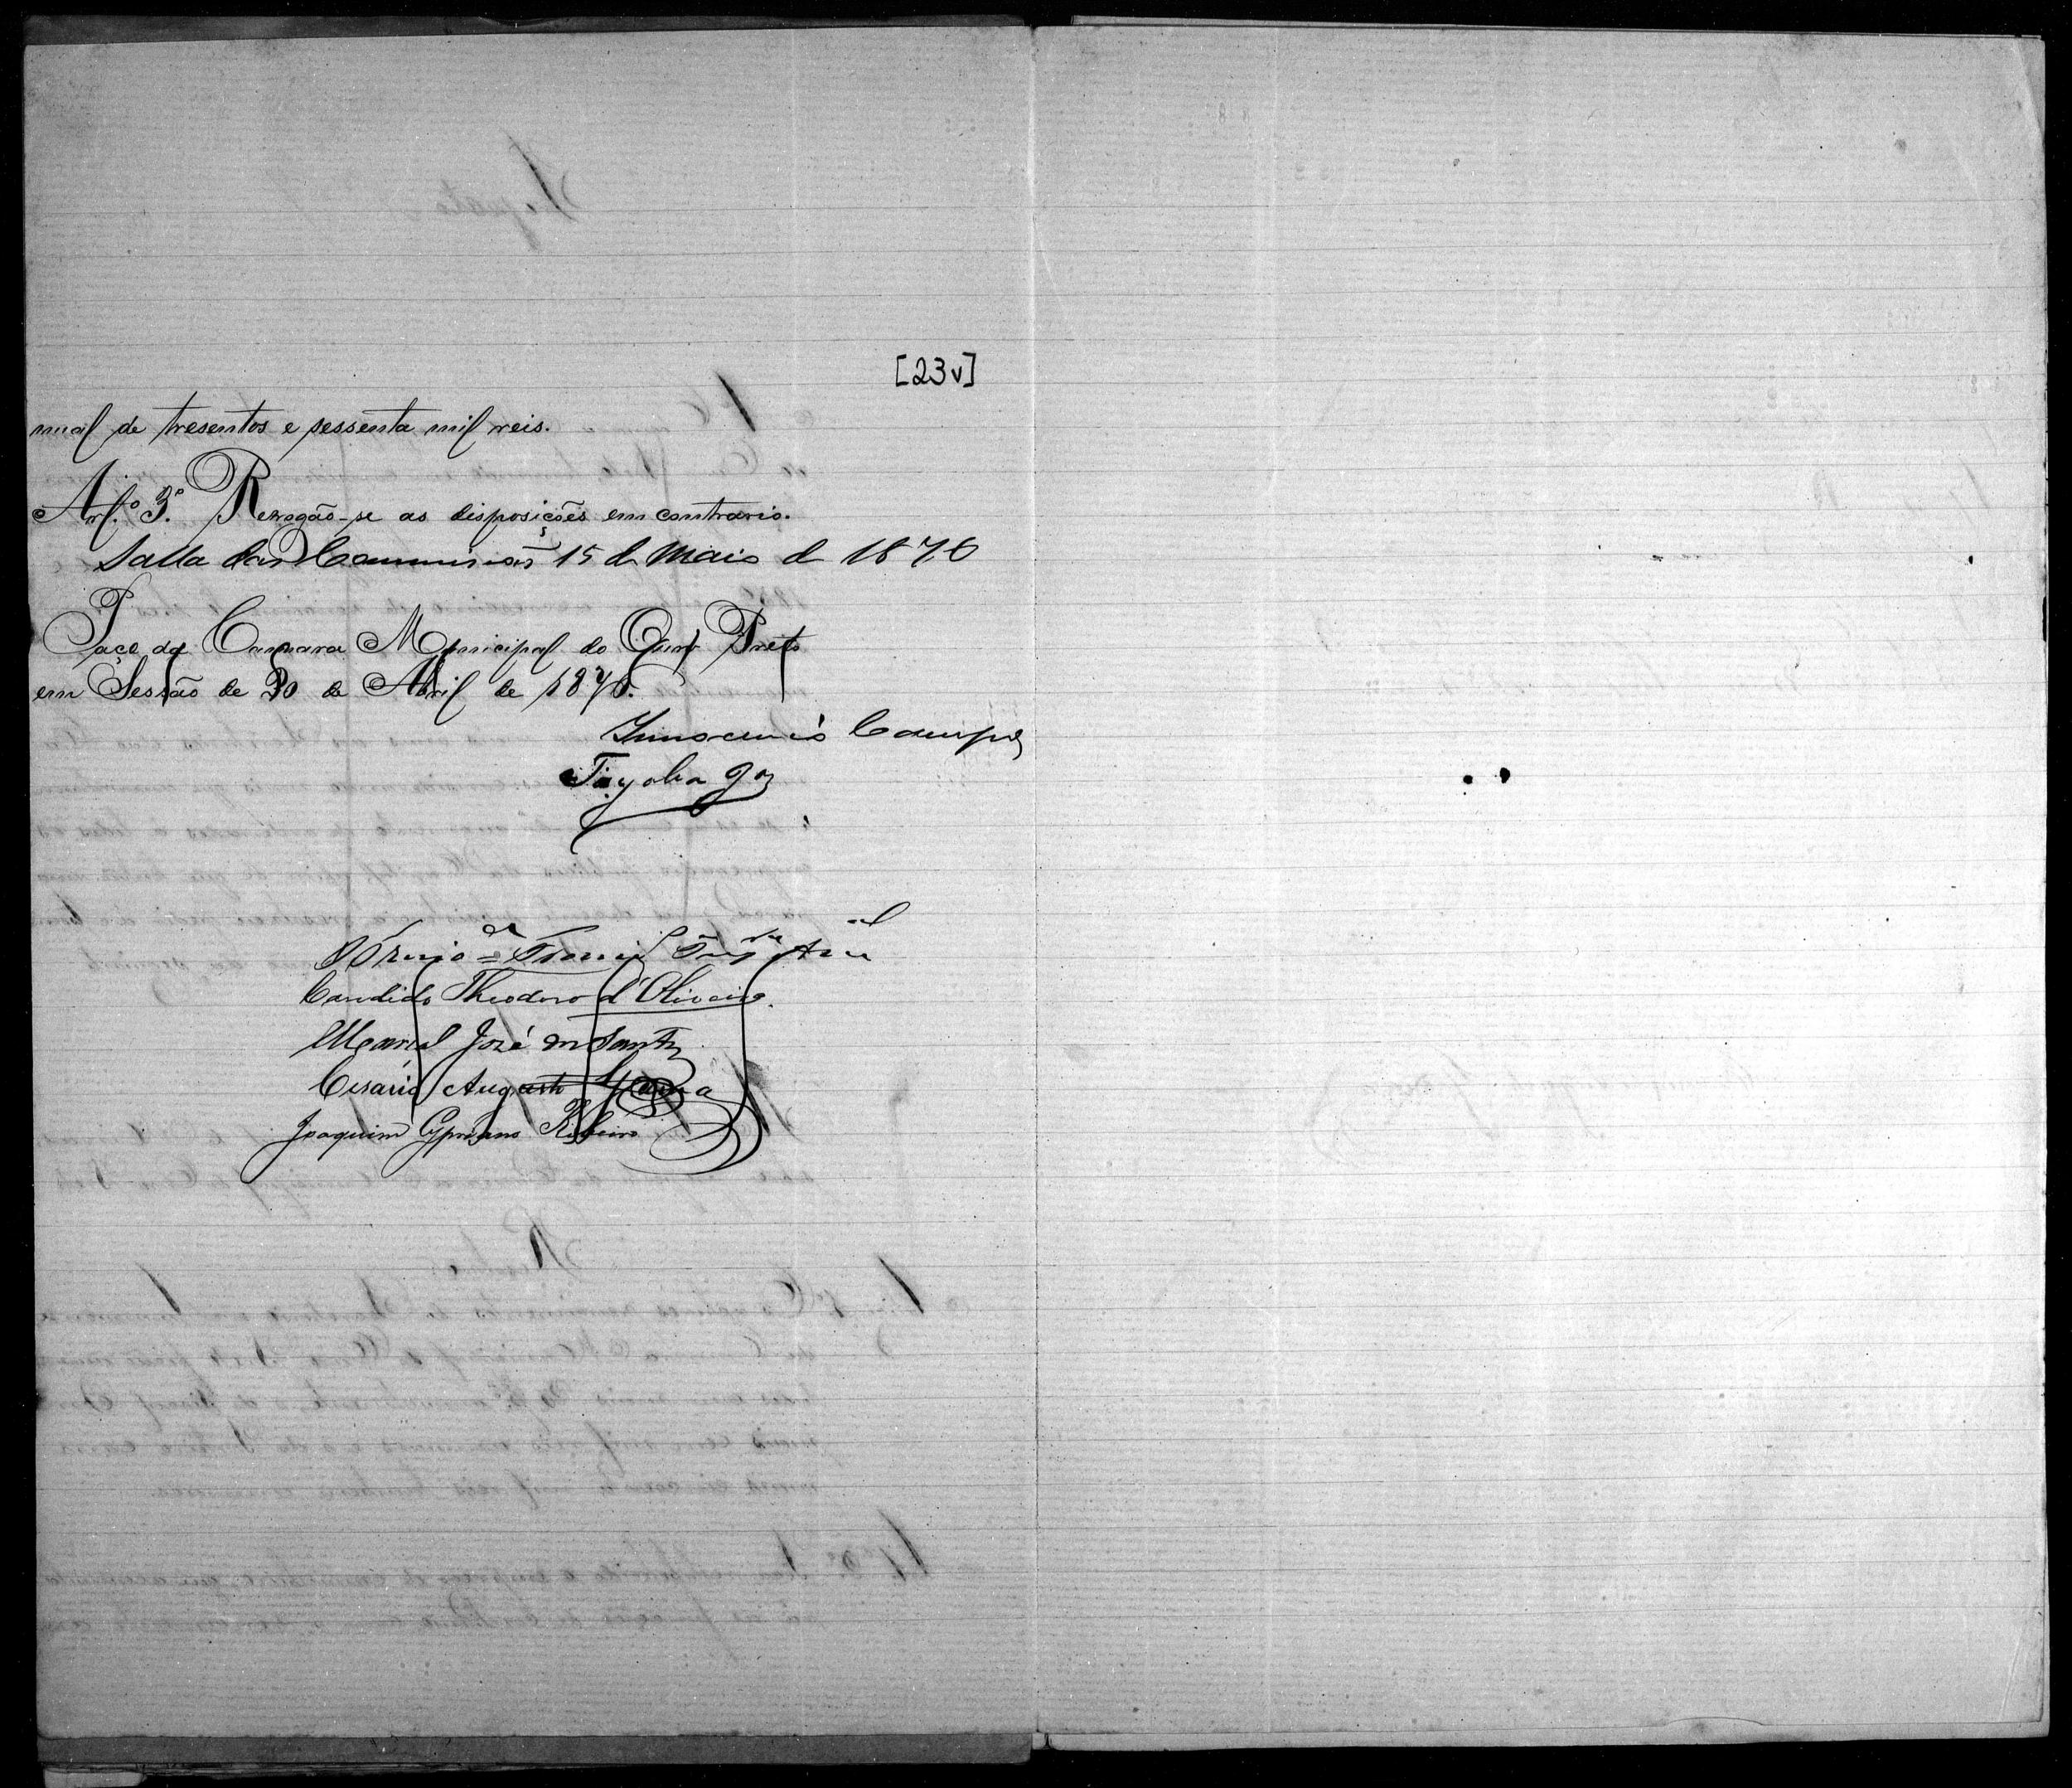 [23v]
nual de tresentos e sessenta mil reis.
Art.º 3º. Revogão-se as disposições em contrario.
Salla das Commissões 15 de Maio de 1876
Paço da Camara Municipal do Ouro Preto
em Sessão de 30 de Abril de 1876.
Innocencio Campos
Candido Theodoro d'Oliveira.
Manoel José dos Santos
Cesario Augusto Gama
Joaquim Cypriano Ribeiro